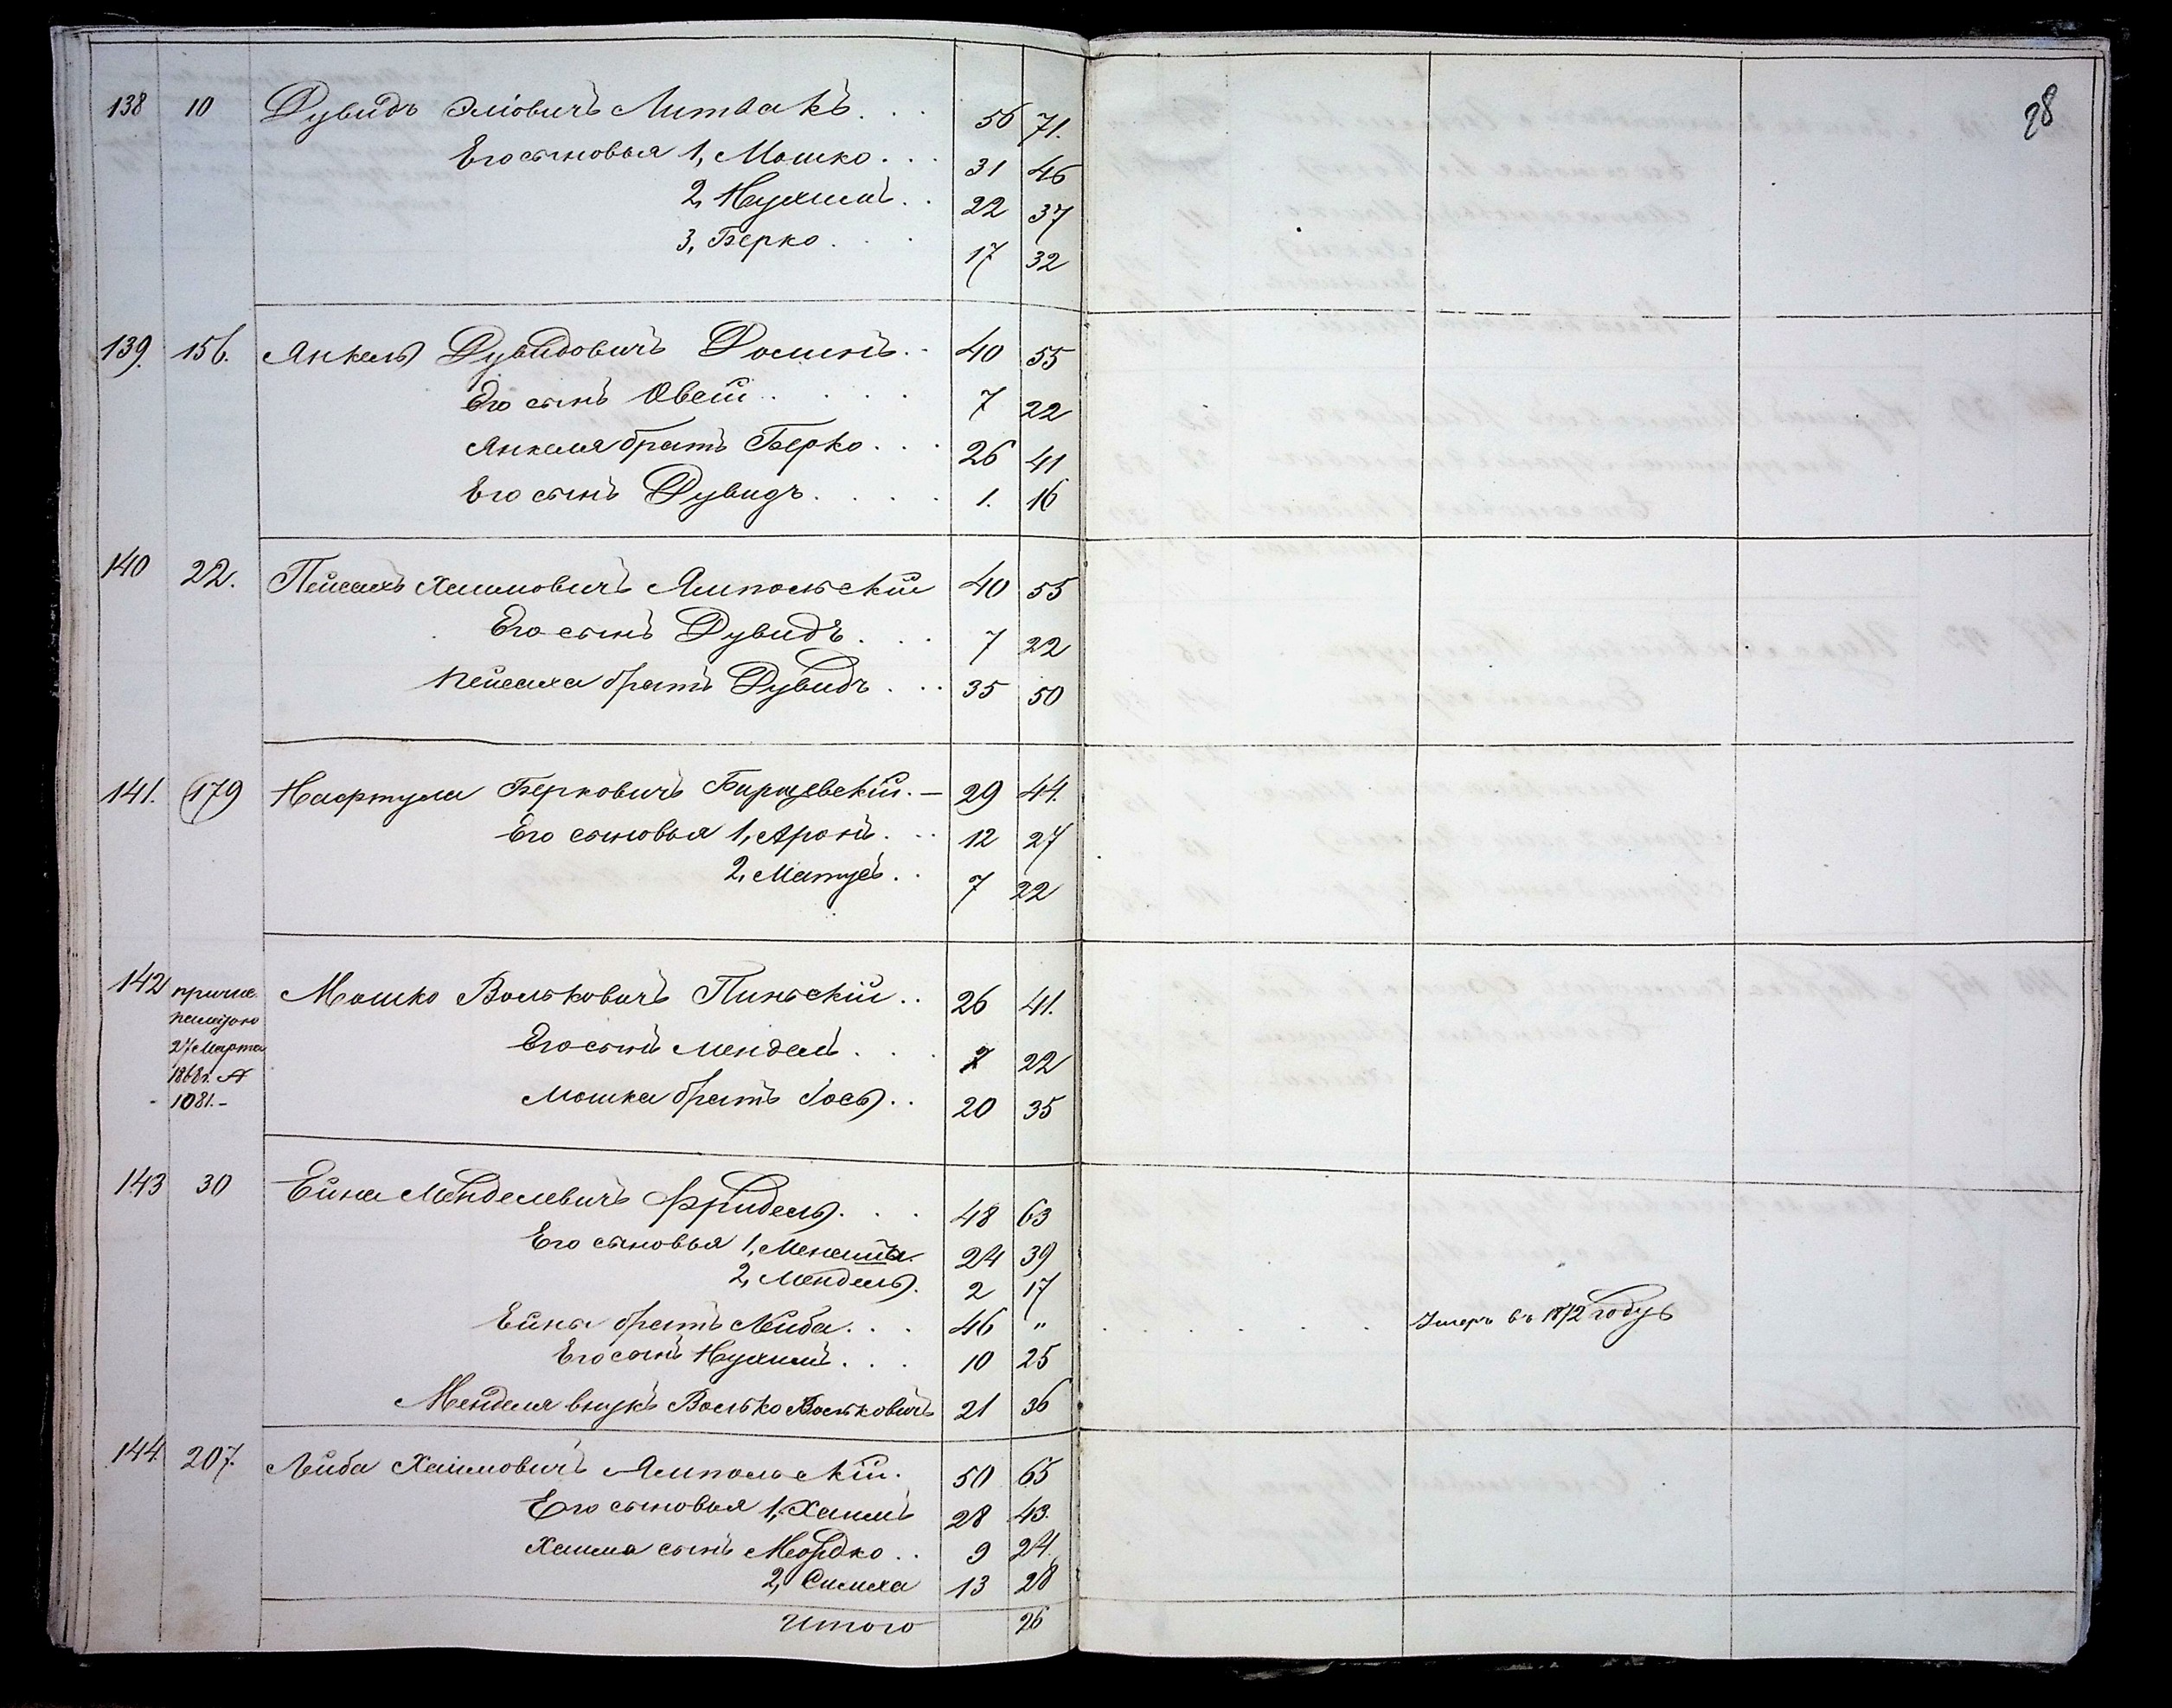 28
138 10 Дувидъ Эліовичъ Литвакъ . . . 56 71.
Его сыновья 1, Мошко . . . 31 46
2, Нухимъ . . 22 37
3, Берко . . . 17 32
139. 156. Янкель Дувидовичъ Фоминъ . . 40 55
Его сынъ Овсій . . . . . 7 22
Янкеля братъ Берко . . . 26 41
Его сынъ Дувидъ . . . . 1. 16
140 22. Пейсахъ Хаимовичъ Ямпольскій 40 55
Его сынъ Дувидъ . . . 7 22
Пейсаха братъ Дувидъ . . . 35 50
141. 179 Нафтула Берковичъ . — 29 44.
Его сыновья 1, Аронъ . . . 12 27
2, Матусъ . . 7 22
142 причис. Мошко Вольковичъ Пинскій . . 26 41.
27 Марта Его сынъ Мендель . . . 7 22
1868 г. №
1081.- Мошка братъ Іось . . 20 35
143 30 Ейна Менделевичъ Фридель . . . 48 63
Его сыновья 1, 24 39
2, Мендель . 2 17
Ейны братъ Лейба . . . 46 " . . . . . . Умеръ въ 1872 году
Его сынъ Нухимъ . . . 10 25
Менделя внукъ Волько Вольковичъ 21 36
144. 207. Лейба Хаимовичъ Ямпольскій . 50 65
Его сыновья 1, Хаимъ 28 43.
Хаима сынъ Мордко . . 9 24.
2, Симха 13 28
Итого 26